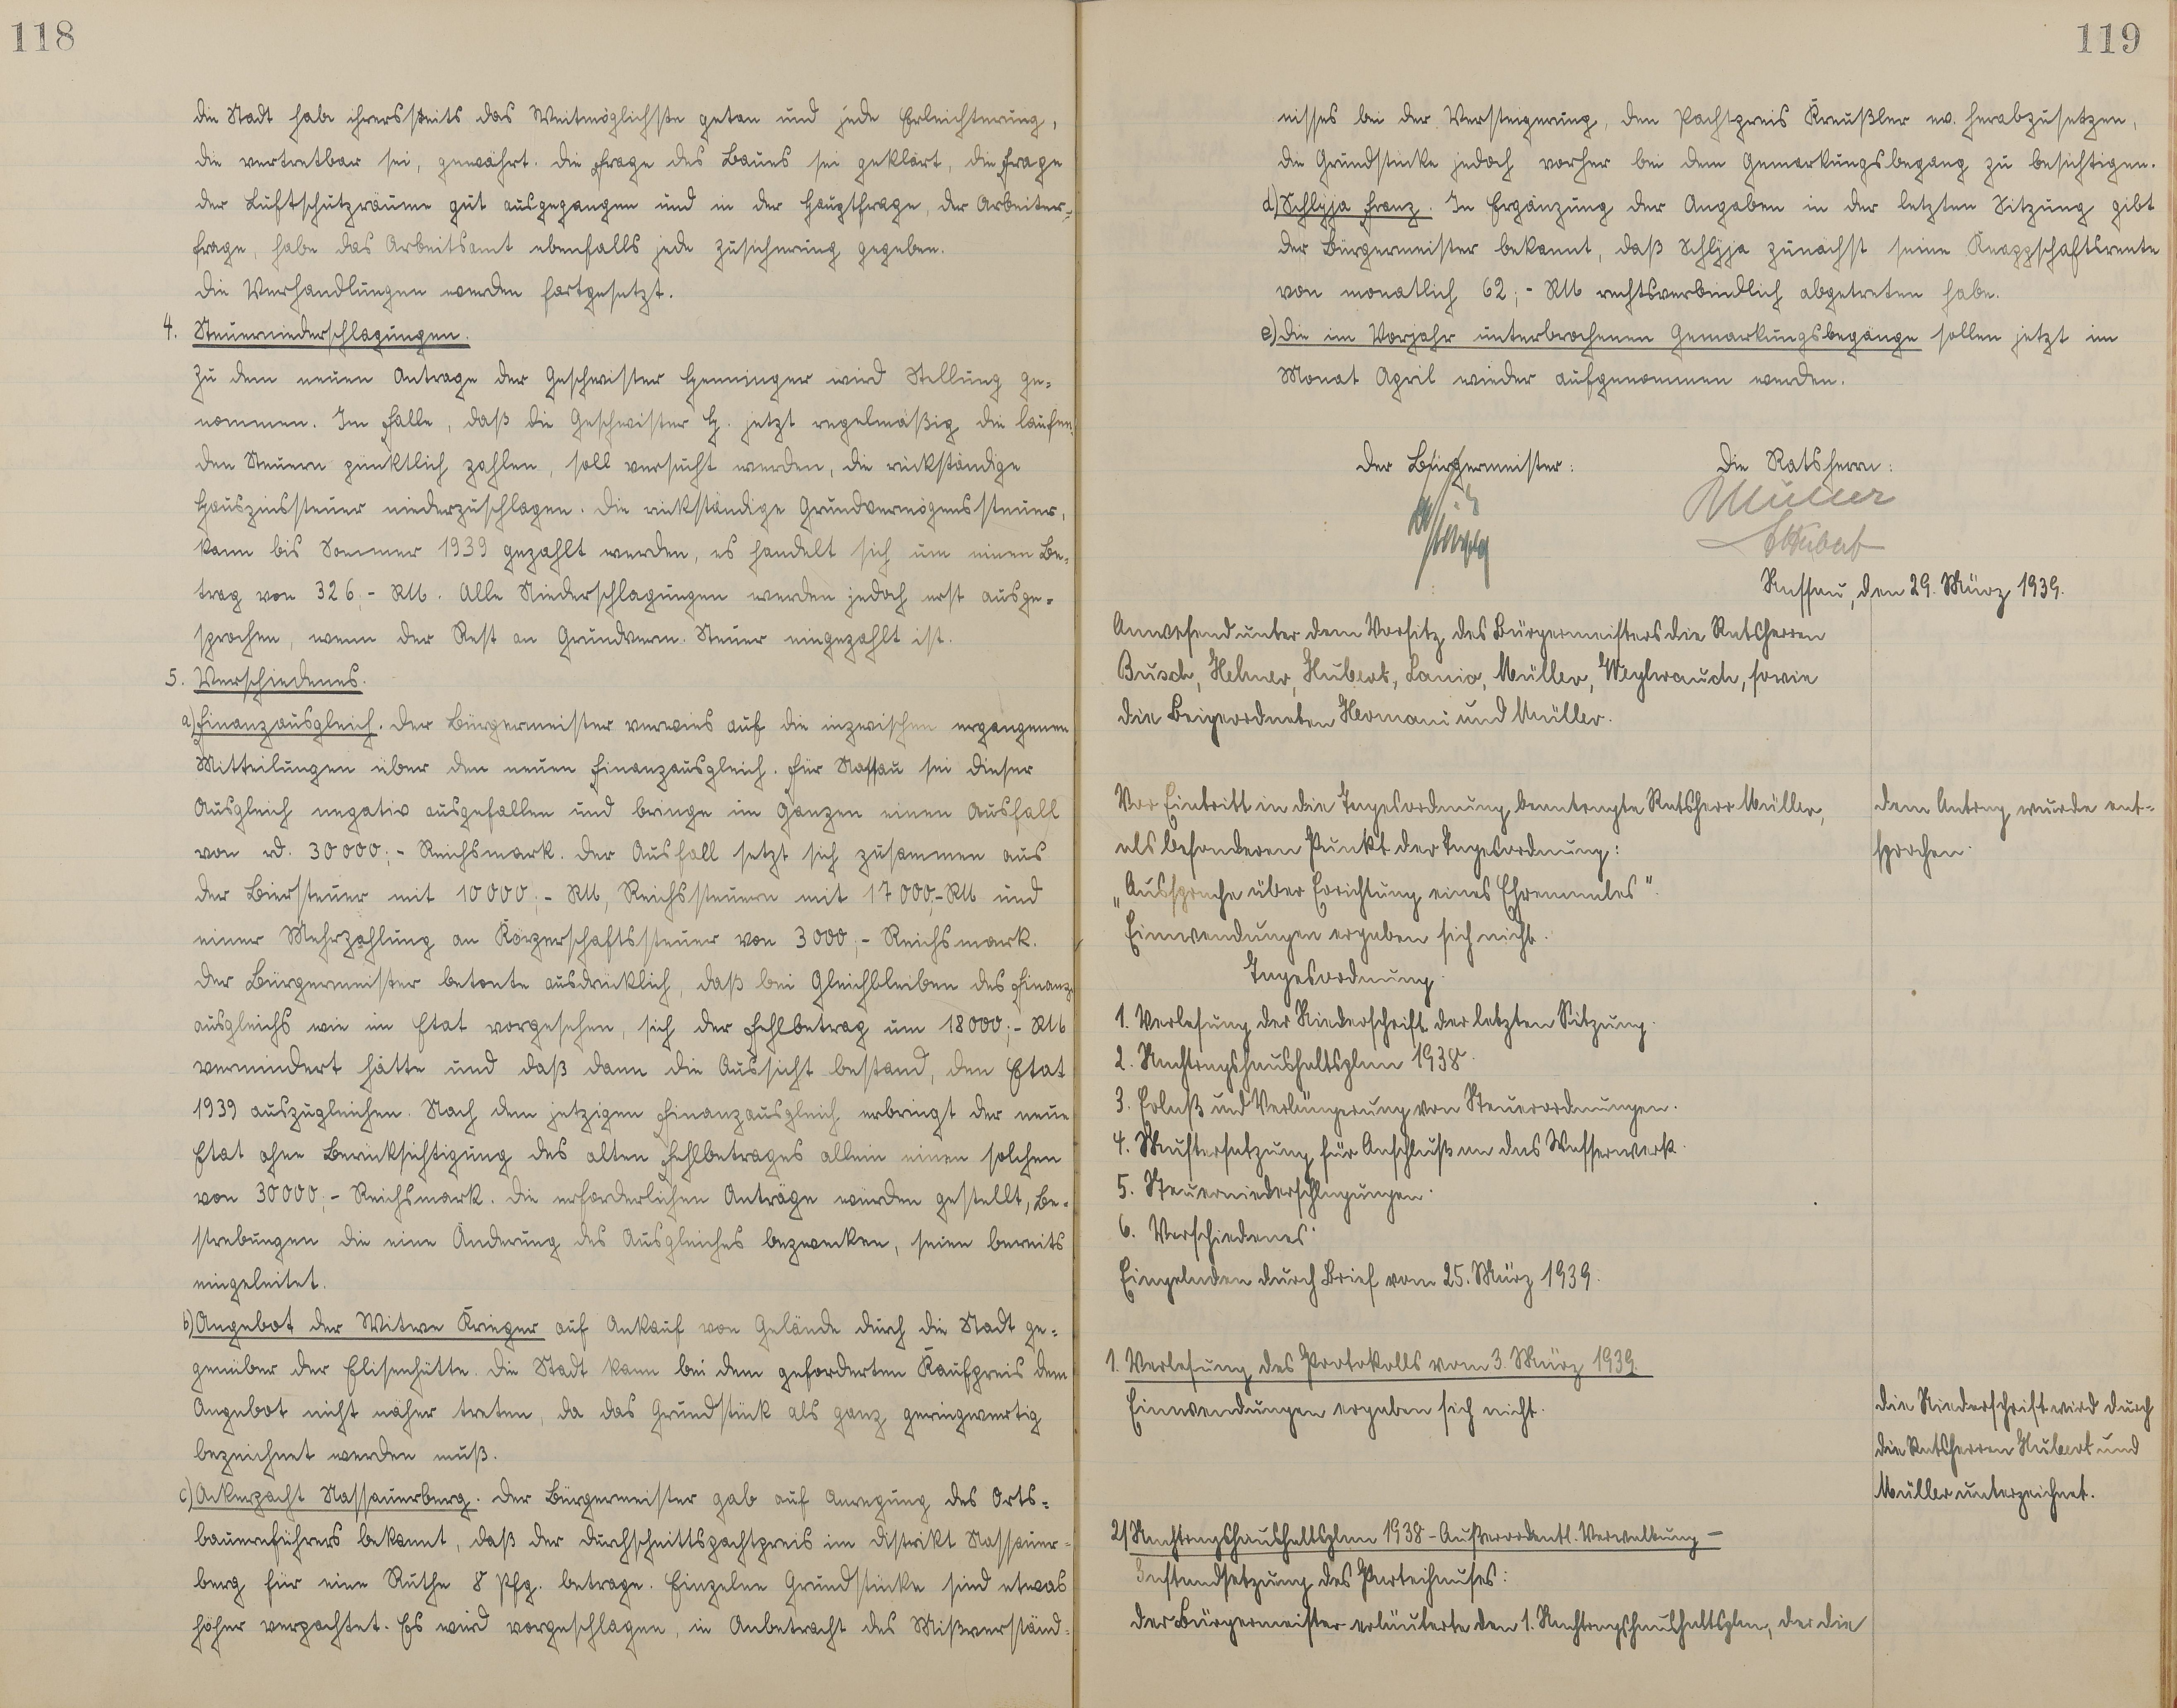 118
die Stadt habe ihrersseits das Weitmöglichste getan und jede Erleichterung,
die vertretbar sei, gewährt. Die Frage des Baues sei geklärt, die Frage
der Luftschutzräume gut ausgegangen und in der Hauptfrage, der Arbeiter-
frage, habe das Arbeitsamt ebenfalls jede Zusicherung gegeben.
Die Verhandlungen werden fortgesetzt.
4. Steuerniederschlagungen.
Zu dem neuen Antrage der Geschwister Henninger wird Stellung ge-
nommen. Im Falle, daß die Geschwister H. jetzt regelmäßig die laufen-
den Steuern pünktlich zahlen, soll versucht werden, die rückständige
Hauszinssteuer niederzuschlagen. Die rückständige Grundvermögenssteuer,
kann bis Sommer 1939 gezahlt werden, es handelt sich um einen Be-
trag von 326,- RM. Alle Niederschlagungen werden jedoch erst ausge-
sprochen, wenn der Rest an Grundverm. Steuer eingezahlt ist.
5. Verschiedenes.
a) Finanzausgleich. Der Bürgermeister verwies auf die inzwischen ergangenen
Mitteilungen über den neuen Finanzausgleich. Für Nassau sei dieser
Ausgleich negativ ausgefallen und bringe im Ganzen einen Ausfall
von rd. 30000,- Reichsmark. Der Ausfall setzt sich zusammen aus
der Biersteuer mit 10000,- RM, Reichssteuern mit 17000,- RM und
einer Mehrzahlung an Körperschaftssteuer von 3000,- Reichsmark.
Der Bürgermeister betonte ausdrücklich, daß bei Gleichbleiben des Finanz-
ausgleichs wie im Etat vorgesehen, sich der Fehlbetrag um 18000,- RM
vermindert hätte und daß dann die Aussicht bestand, den Etat
1939 auszugleichen. Nach dem jetzigen Finanzausgleich erbringt der neue
Etat ohne Berücksichtigung des alten Fehlbetrages allein einen solchen
von 30000,- Reichsmark. Die erforderlichen Anträge würden gestellt, Be-
strebungen die eine Änderung des Ausgleiches bezwecken, seien bereits
eingeleitet.
b) Angebot der Witwe Krieger auf Ankauf von Gelände durch die Stadt ge-
genüber der Elisenhütte. Die Stadt kann bei dem geforderten Kaufpreis dem
Angebot nicht näher treten, da das Grundstück als ganz geringwertig
bezeichnet werden muß.
c) Ackerpacht Nassauerberg. Der Bürgermeister gab auf Anregung des Orts-
bauernführers bekannt, daß der Durchschnittspachtpreis im Distrikt Nassauer-
berg für eine Ruthe 8 Pfg. betrage. Einzelne Grundstücke sind etwas
höher verpachtet. Es wird vorgeschlagen, in Anbetracht des Mißverständ-
119
nisses bei der Versteigerung, den Pachtpreis Kreußler ev. herabzusetzen,
die Grundstücke jedoch vorher bei dem Gemarkungsbegang zu besichtigen.
d) Schlyja Franz. In Ergänzung der Angaben in der letzten Sitzung gibt
der Bürgermeister bekannt, daß Schlyja zunächst seine Knappschaftsrente
von monatlich 62,- RM rechtsverbindlich abgetreten habe.
e) Die im Vorjahr unterbrochenen Gemarkungsbegänge sollen jetzt im
Monat April wieder aufgenommen werden.
Der Bürgermeister: Die Ratsherrn:
Müller
Hubert
Nassau, den 29. März 1939.
Anwesend unter dem Vorsitz des Bürgermeisters die Ratsherren
Busch, Hehner, Hubert, Lanio, Müller, Weyhrauch, sowie
die Beigeordneten Hermani und Müller.
Vor Eintritt in die Tagesordnung beantragte Ratsherr Müller,
als besonderen Punkt der Tagesordnung:
„Aussprache über Errichtung eines Ehrenmales".
Einwendungen ergaben sich nicht.
Dem Antrag wurde ent-
sprochen.
Tagesordnung.
1. Verlesung der Niederschrift der letzten Sitzung.
2. Nachtragshaushaltsplan 1938.
3. Erlaß und Verlängerung von Steuerordnungen.
4. Mustersatzung für Anschluß an das Wasserwerk.
5. Steuerniederschlagungen.
6. Verschiedenes.
Eingeladen durch Brief vom 25. März 1939.
1. Verlesung des Protokolls vom 3. März 1939.
Einwendungen ergaben sich nicht.
Die Niederschrift wird durch
die Ratsherren Hubert und
Müller unterzeichnet.
2) Nachtragshaushaltsplan 1938 - Außerordentl. Verwaltung -
Instandsetzung des Parteihauses:
Der Bürgermeister erläuterte den 1. Nachtragshaushaltsplan, der die